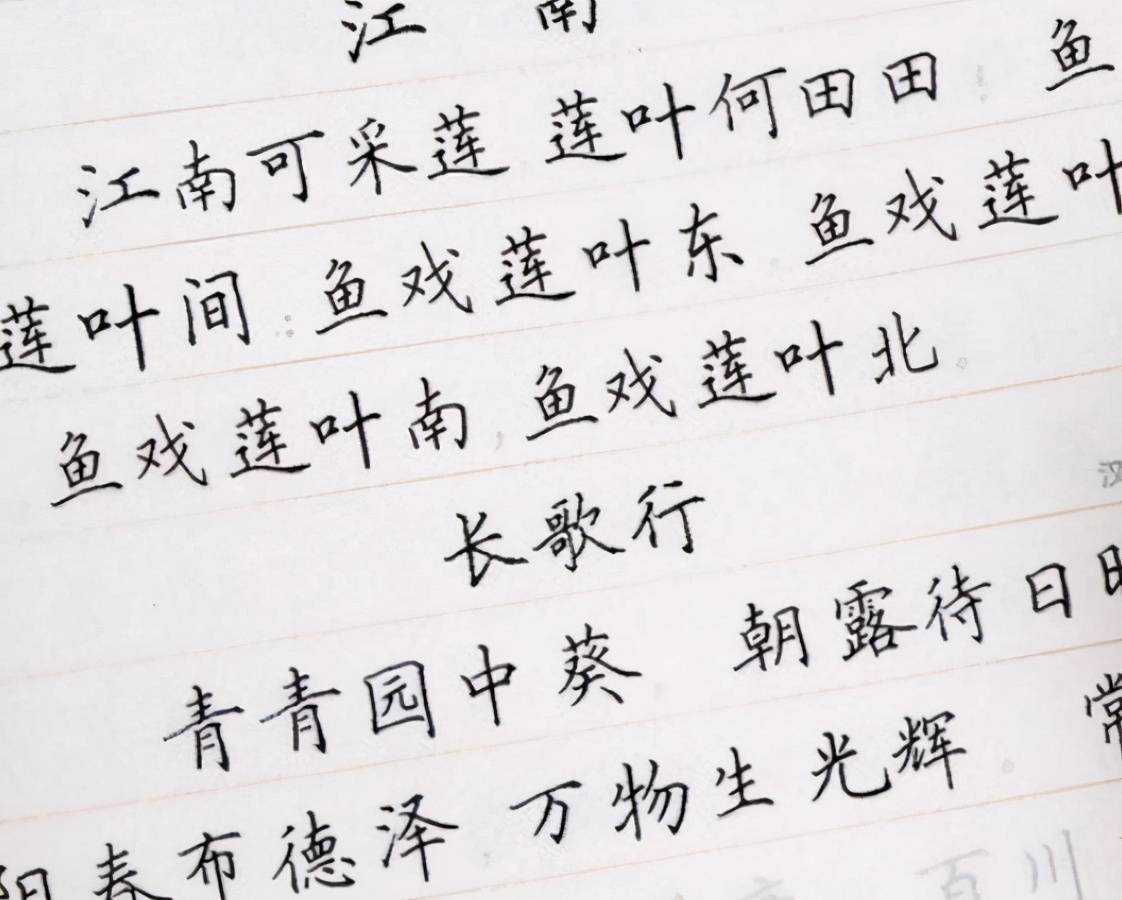 江南
江南可采莲 莲叶何田田 鱼
莲叶间 鱼戏莲叶东 鱼戏莲叶
鱼戏莲叶南 鱼戏莲叶北
长歌行
汉
青青园中葵 朝露待日
阳春布德泽 万物生光辉 常
百川